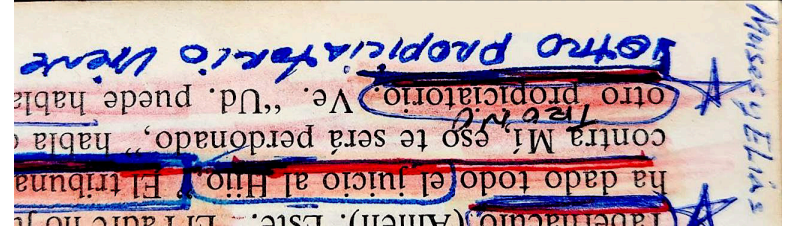 Tabernáculo, (Amén). Este. El Padre no
ha dado todo el juicio al Hijo." El
contra Mí, eso te será perdonado," habla
TRONO
otro propiciatorio. Ve. "Ud. puede
otro propiciatorio viene
Moises y ELIAS